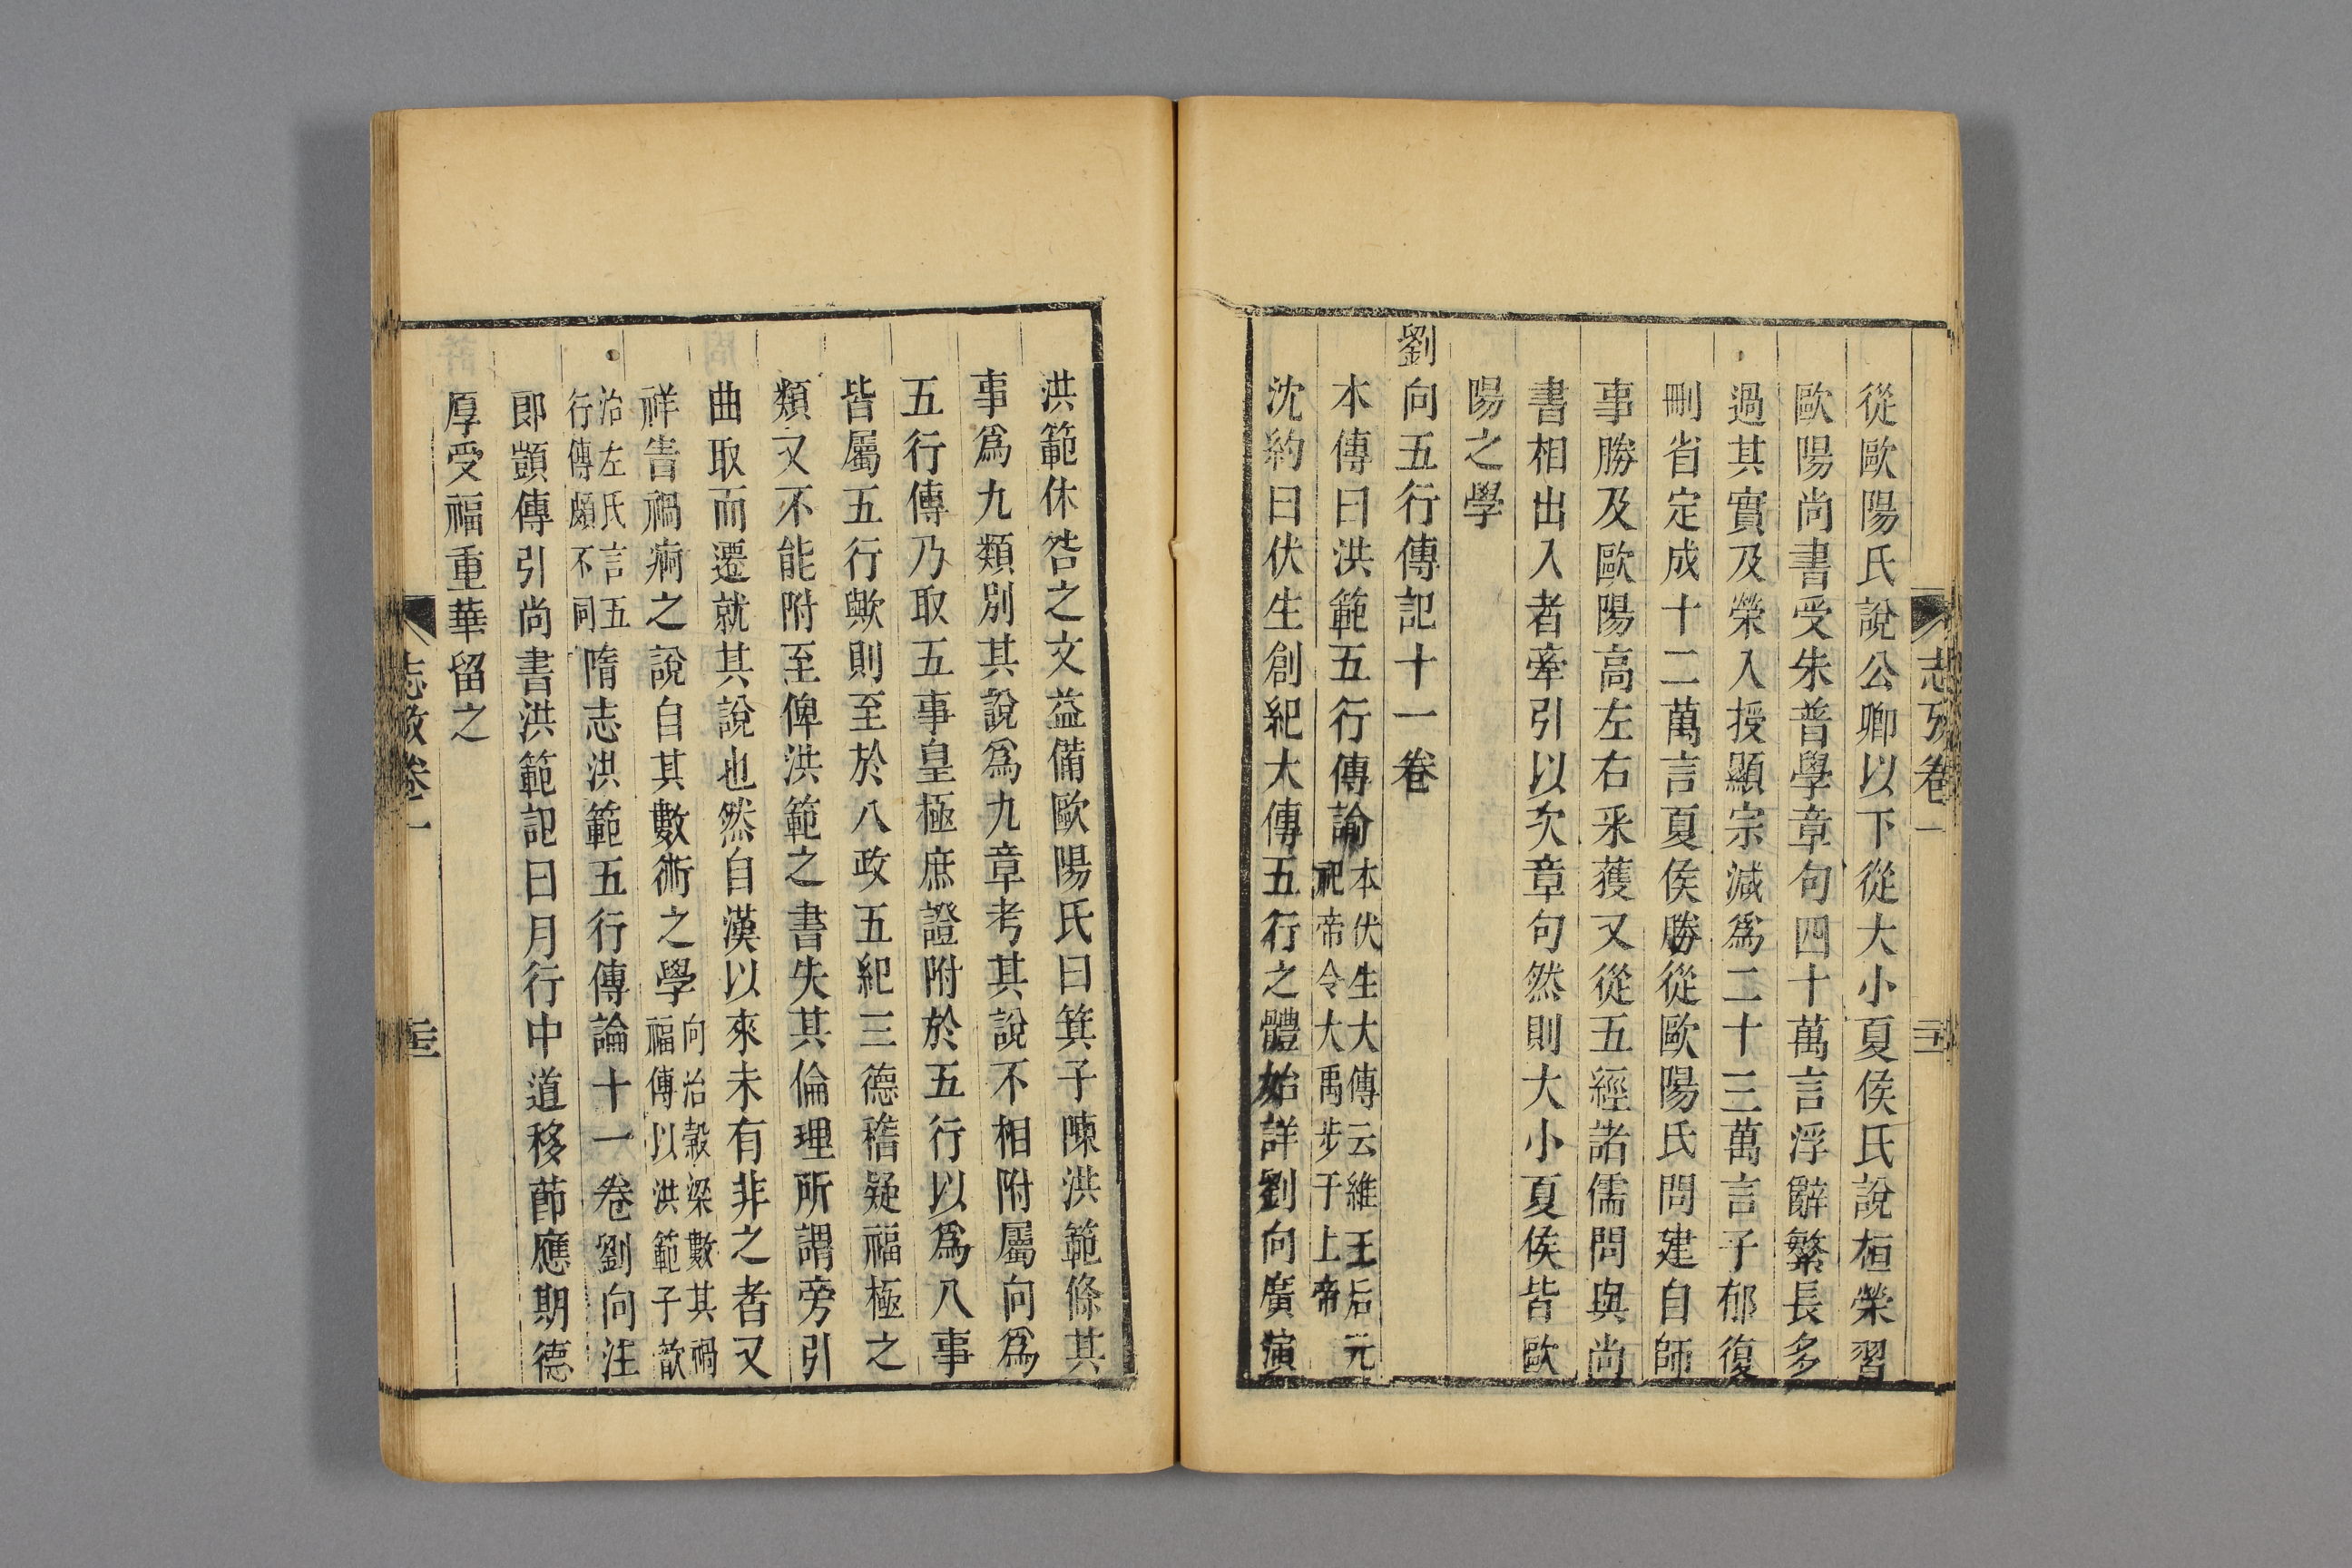 志攷卷一
從歐陽氏說公卿以下從大小夏侯氏說桓榮習
歐陽尚書受朱普學章句四十萬言浮辭繁長多
過其實及榮入授顯宗減爲二十三萬言子郁復
刪省定成十二萬言夏侯勝從歐陽氏問建自師
事勝及歐陽高左右采獲又從五經諸儒問與尚
書相出入者牽引以次章句然則大小夏侯皆歐
陽之學
劉向五行傳記十一卷
本傳曰洪範五行傳論本伏生大傳云維王后元祀帝令大禹步于上帝
沈約曰伏生創紀大傳五行之體始詳劉向廣演
洪範休咎之文益備歐陽氏曰箕子陳洪範條其
事爲九類別其說爲九章考其說不相附屬向爲
五行傳乃取五事皇極庶證附於五行以爲八事
皆屬五行歟則至於八政五紀三德稽疑福極之
類又不能附至俾洪範之書失其倫理所謂旁引
曲取而遷就其說也然自漢以來未有非之者又
祥眚禍痾之說自其數術之學向治穀梁數其禍福傳以洪範子歆
治左氏言五行傳頗不同隋志洪範五行傳論十一卷劉向注
郎顗傳引尚書洪範記曰月行中道移節應期德
厚受福重華留之
志攷卷一